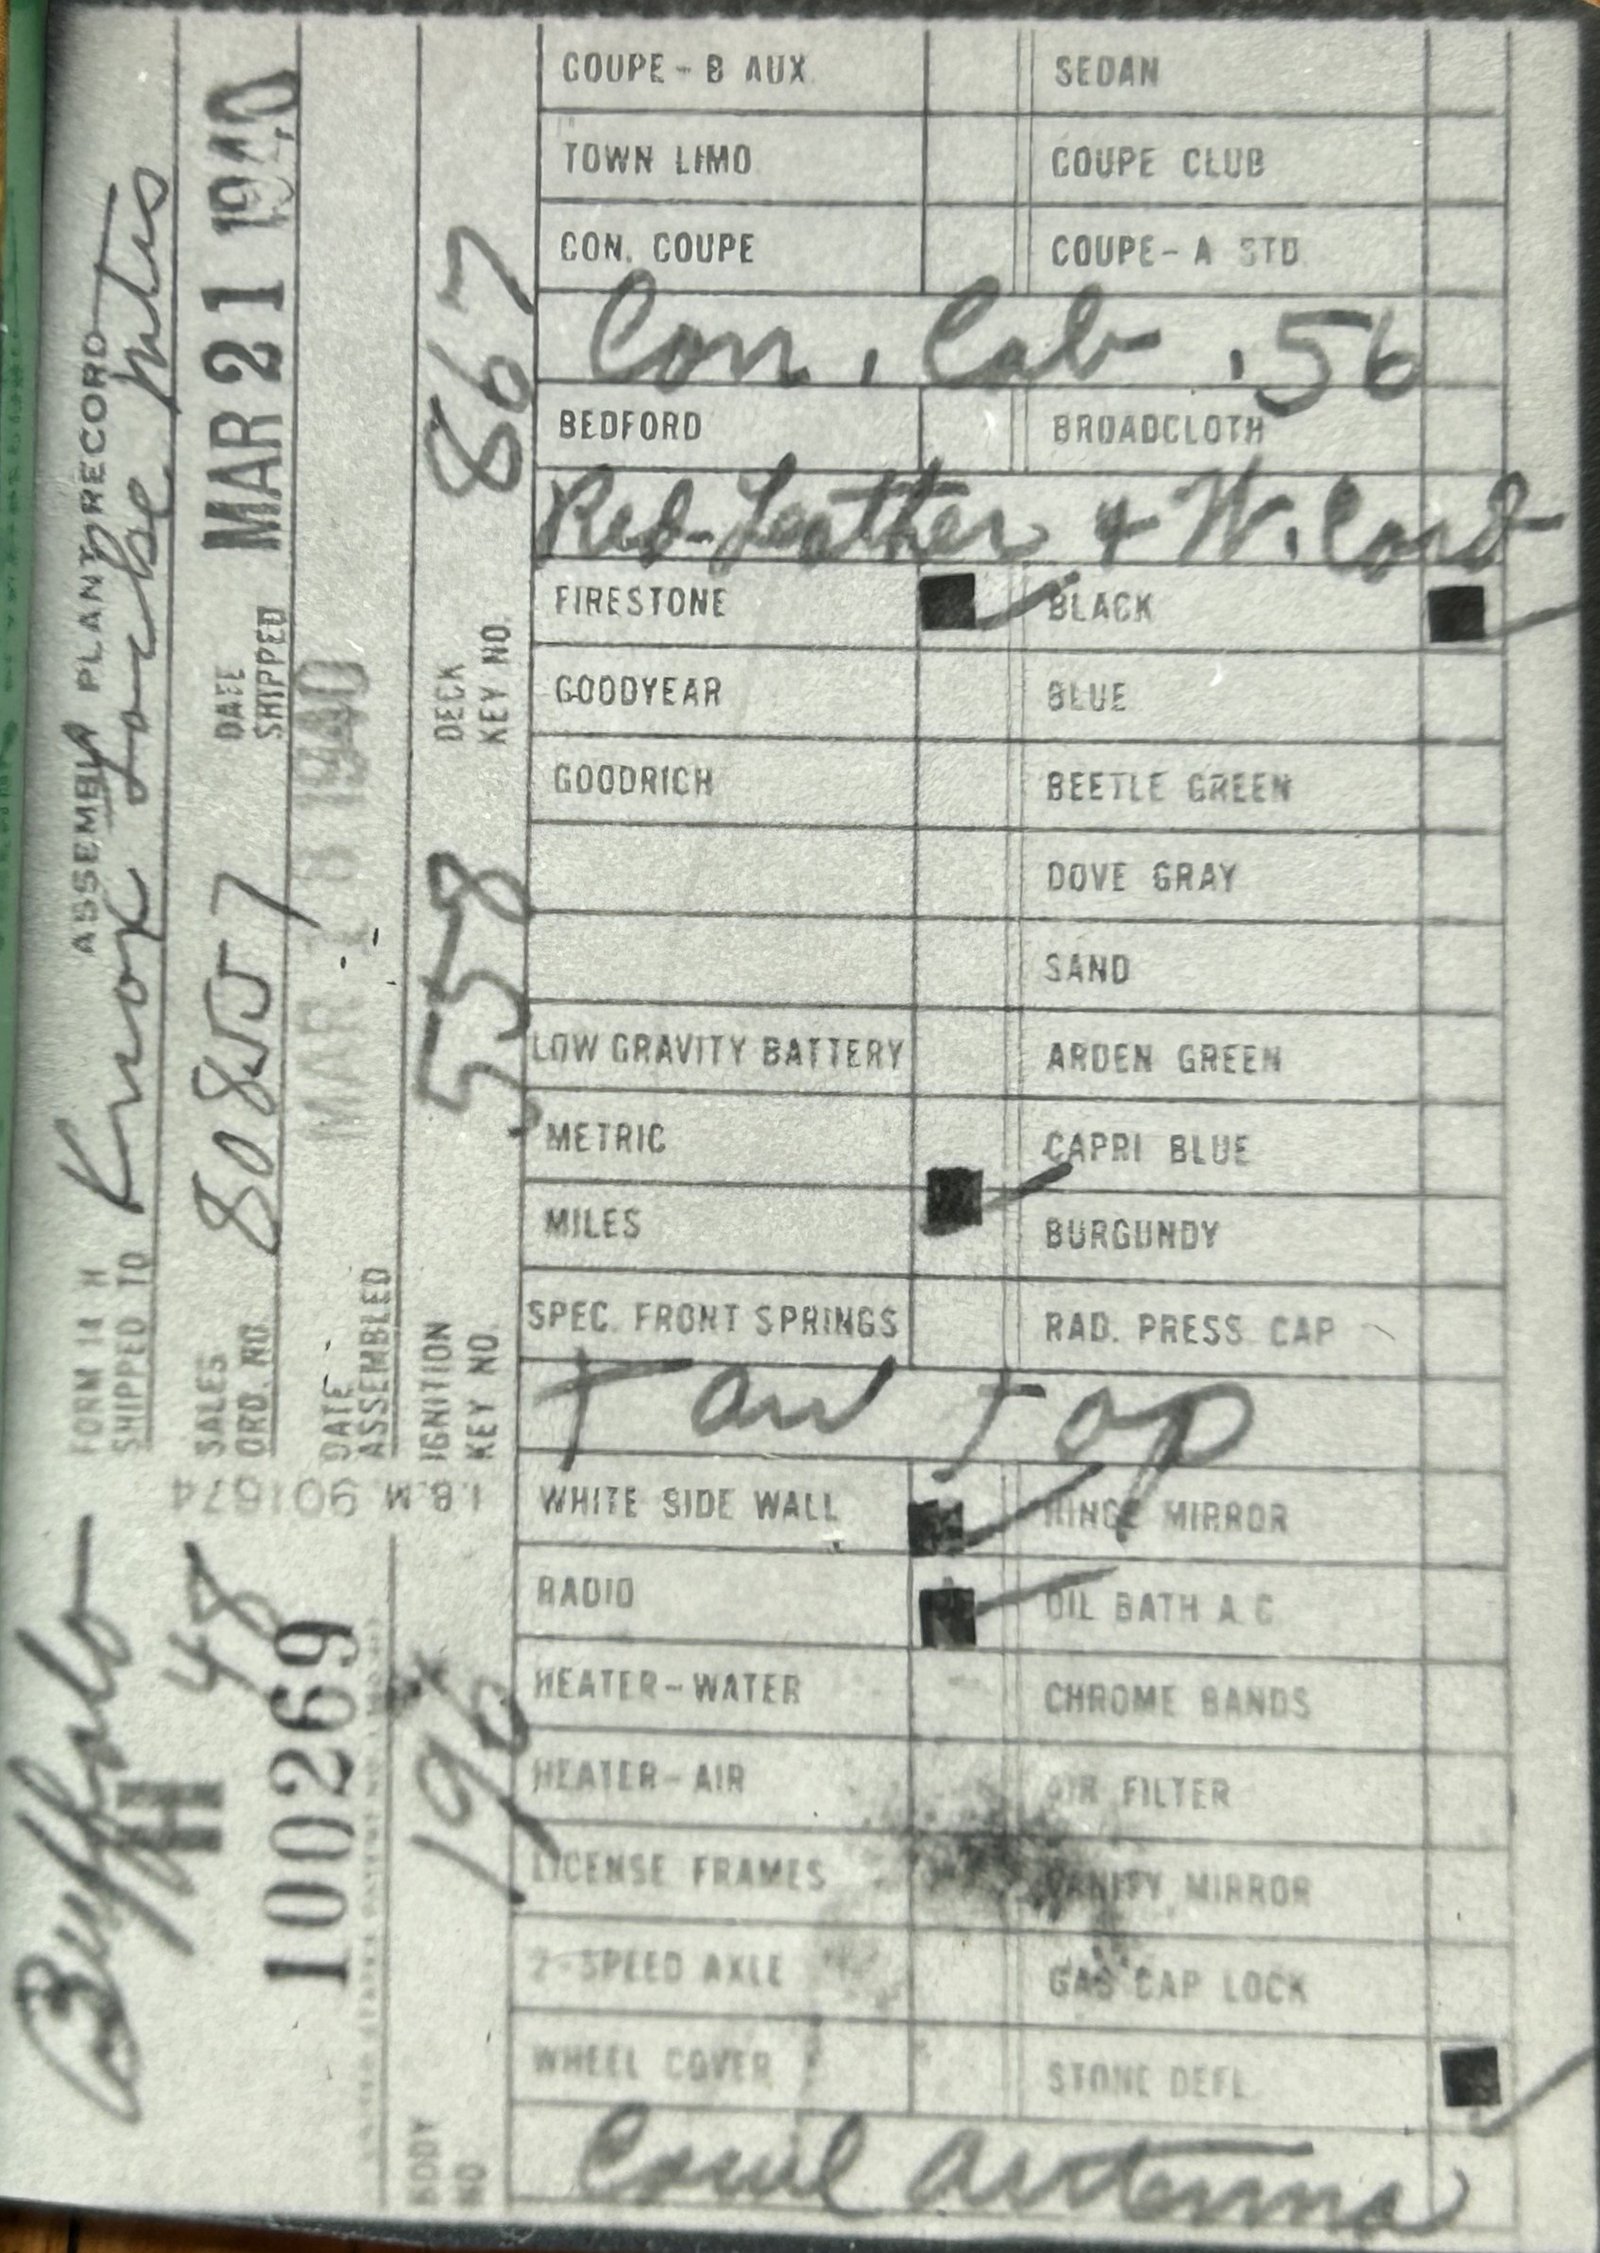 ASSEMBLY PLANT RECORD
FORM 18 H
SHIPPED TO Knox
SALES ORD. NO. 808557 DATE SHIPPED MAR 21 1940
DATE ASSEMBLED MAR 18 1940
IGNITION KEY NO. 558 DECK KEY NO. 867
I.B.M. 901674
Buffalo
H 48
100269
BODY NO 196
COUPE - B AUX SEDAN
TOWN LIMO COUPE CLUB
CON. COUPE COUPE - A STD
Con. Cab. 56
BEDFORD BROADCLOTH
Red-Leather & W. Cord
FIRESTONE BLACK
GOODYEAR BLUE
GOODRICH BEETLE GREEN
DOVE GRAY
SAND
LOW GRAVITY BATTERY ARDEN GREEN
METRIC CAPRI BLUE
MILES BURGUNDY
SPEC. FRONT SPRINGS RAD. PRESS CAP
Tan Top
WHITE SIDE WALL HINGE MIRROR
RADIO OIL BATH A C
HEATER-WATER CHROME BANDS
HEATER-AIR AIR FILTER
LICENSE FRAMES VANITY MIRROR
2-SPEED AXLE GAS CAP LOCK
WHEEL COVER STONE DEFL
Cowl antenna